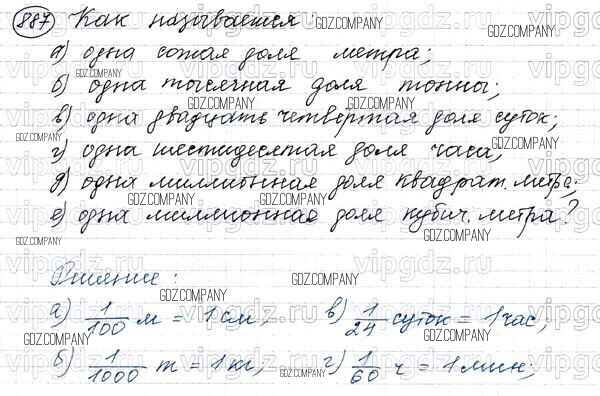 887 Как называется:
а) одна сотая доля метра;
б) одна тысячная доля тонны;
в) одна двадцать четвертая доля суток;
г) одна шестидесятая доля часа;
д) одна миллионная доля квадрат. метра;
е) одна миллионная доля кубич. метра?
Решение:
а) 1/100 м = 1 см; в) 1/24 суток = 1 час;
б) 1/1000 т = 1 кг; г) 1/60 ч = 1 мин;
GDZ.COMPANY
vipgdz.ru